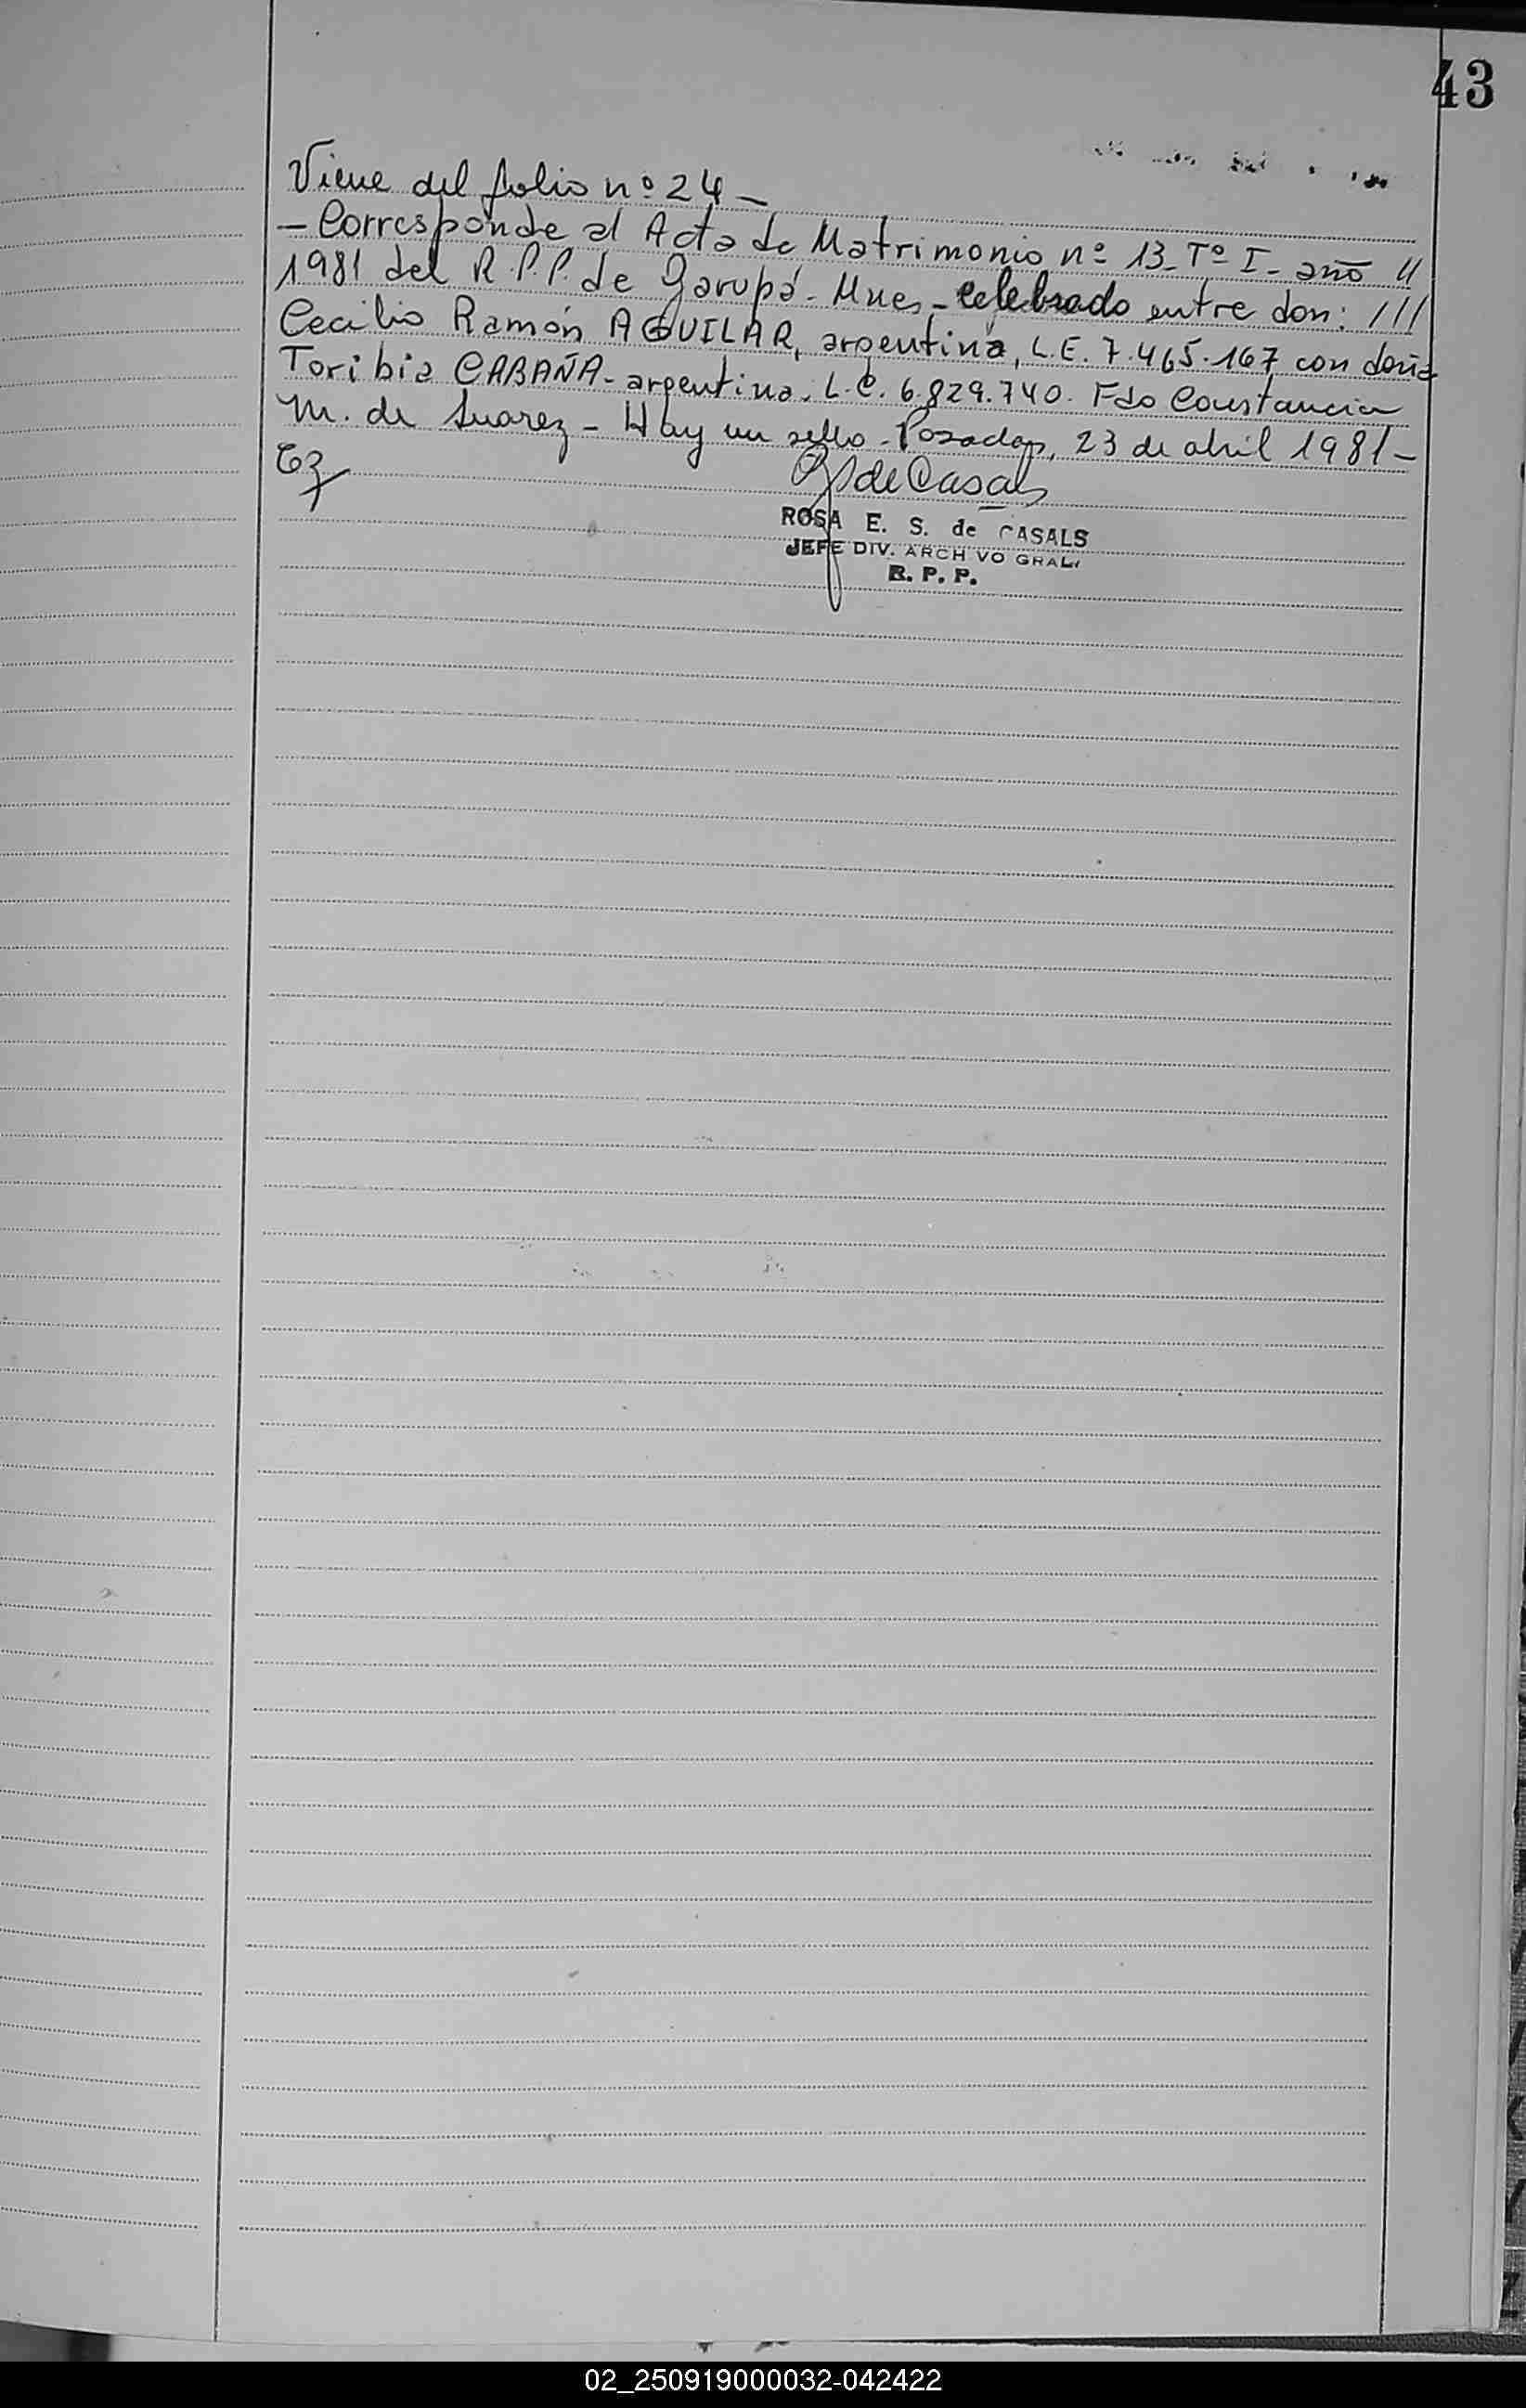 43
Viene del folio nº 24 –
– Corresponde al Acta de Matrimonio nº 13 - Tº I - año //
1981 del R.P.P. de Garupá - Mnes - celebrado entre don: ///
Cecilio Ramón AGUILAR, argentina, L.E. 7.465.167 con doña
Toribia CABAÑA - argentina. L.C. 6.829.740. Fdo Constancia
M. de Suarez - Hay un sello - Posadas, 23 de abril 1981 –
de Casals
ROSA E. S. de CASALS
JEFE DIV. ARCH VO GRAL.
R. P. P.
02_250919000032-042422